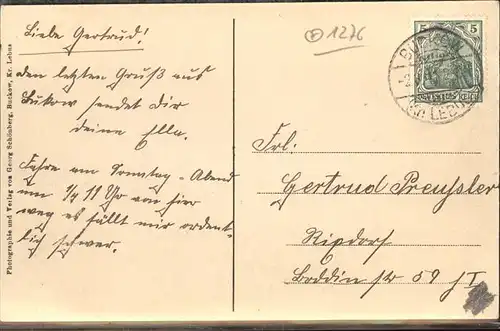 Liebe Gertrud!
den letzten Gruß aus
Bukow sendet Dir
deine Ella.
Fahre am Sonntag-Abend
um 1/4 11 Uhr von hier
weg es fällt mir ordent-
lich schwer.
Photographie und Verlag von Georg Schönberg, Buckow, Kr. Lebus
1276
5 5
BUCKOW
(Kr. LEBUS)
Frl.
Gertrud Preußler
Rixdorf
Boddin str 59 I